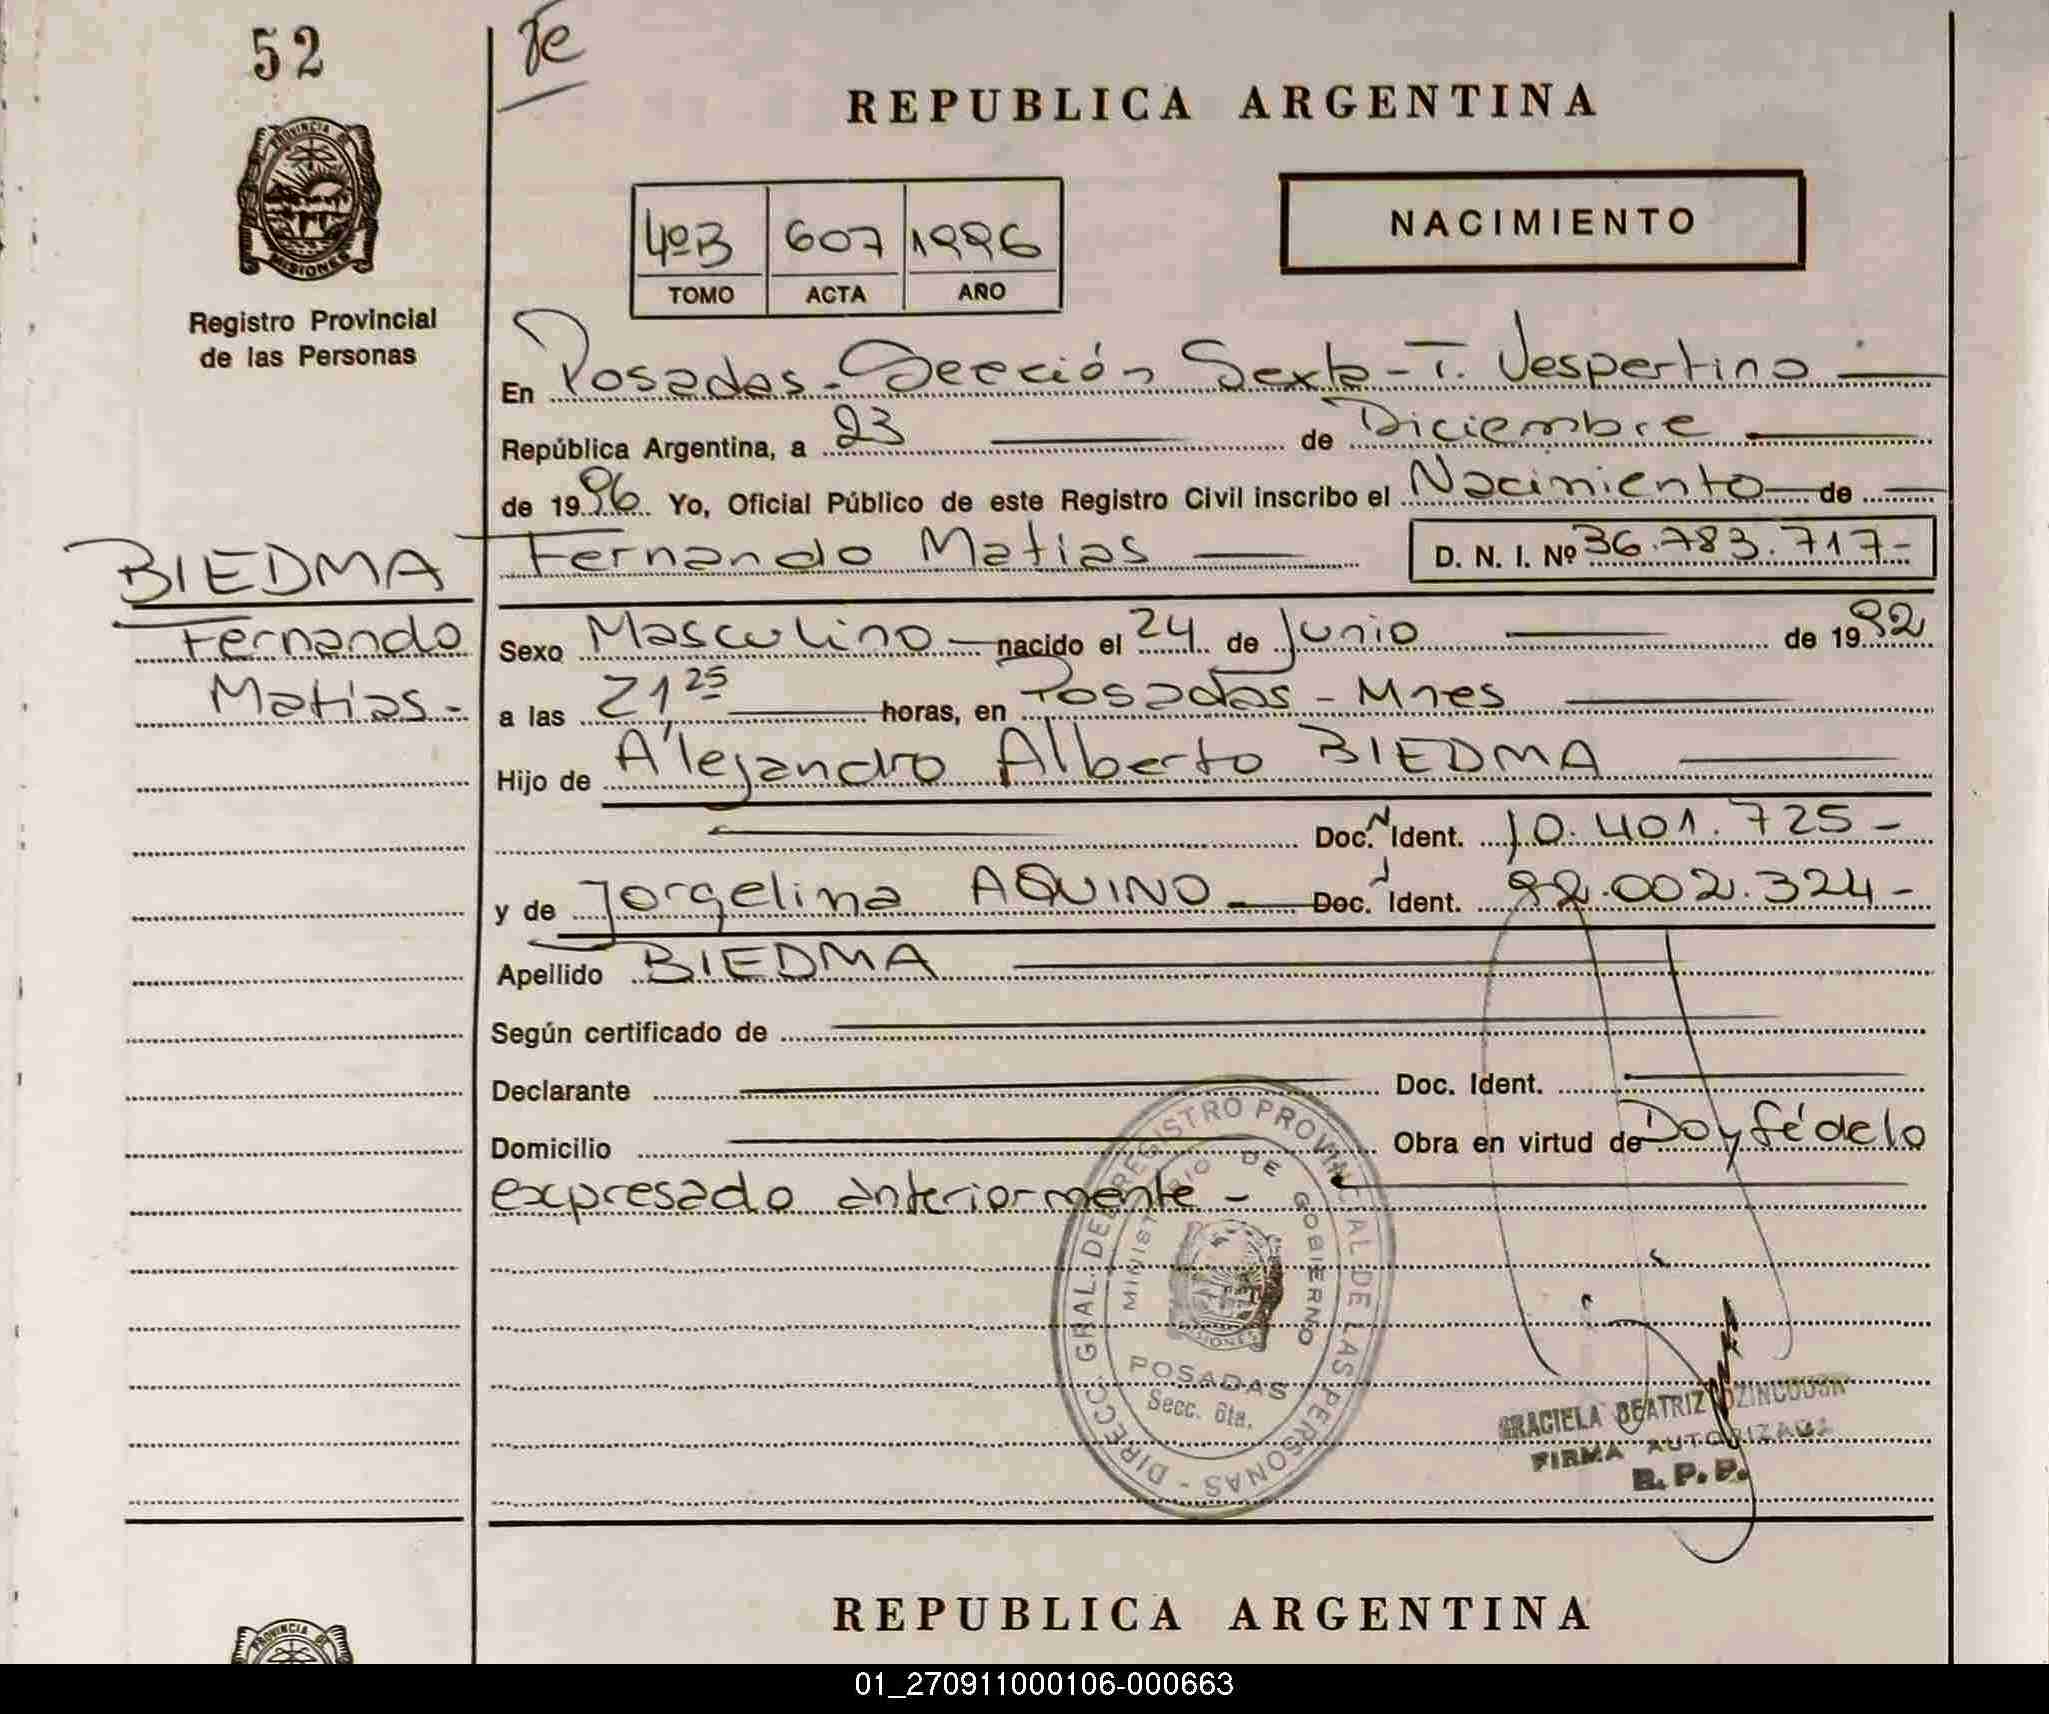 52
Je
PROVINCIA DE
MISIONES
Registro Provincial
de las Personas
REPUBLICA ARGENTINA
4ºB 607 1996
TOMO ACTA AÑO
NACIMIENTO
En Posadas - Sección Sexta - T. Vespertino
República Argentina, a 23 de Diciembre
de 1996 Yo, Oficial Público de este Registro Civil inscribo el Nacimiento de
BIEDMA
Fernando
Matías -
Fernando Matias D. N. I. Nº 36.783.717-
Sexo Masculino nacido el 24 de Junio de 1992
a las 21 25 horas, en Posadas - Mnes
Hijo de Alejandro Alberto BIEDMA
Doc. Ident. 10.401.725-
y de Jorgelina AQUINO Doc. Ident. 92.002.324-
Apellido BIEDMA
Según certificado de
Declarante Doc. Ident.
Domicilio Obra en virtud de Doy fé de lo
expresado anteriormente -
DIRECC. GRAL. DEL REGISTRO PROVINCIAL DE LAS PERSONAS -
MINISTERIO DE GOBIERNO
MISIONES
POSADAS
Secc. 6ta.
GRACIELA BEATRIZ
FIRMA AUTORIZADA
R. P. P.
REPUBLICA ARGENTINA
PROVINCIA DE
01_270911000106-000663